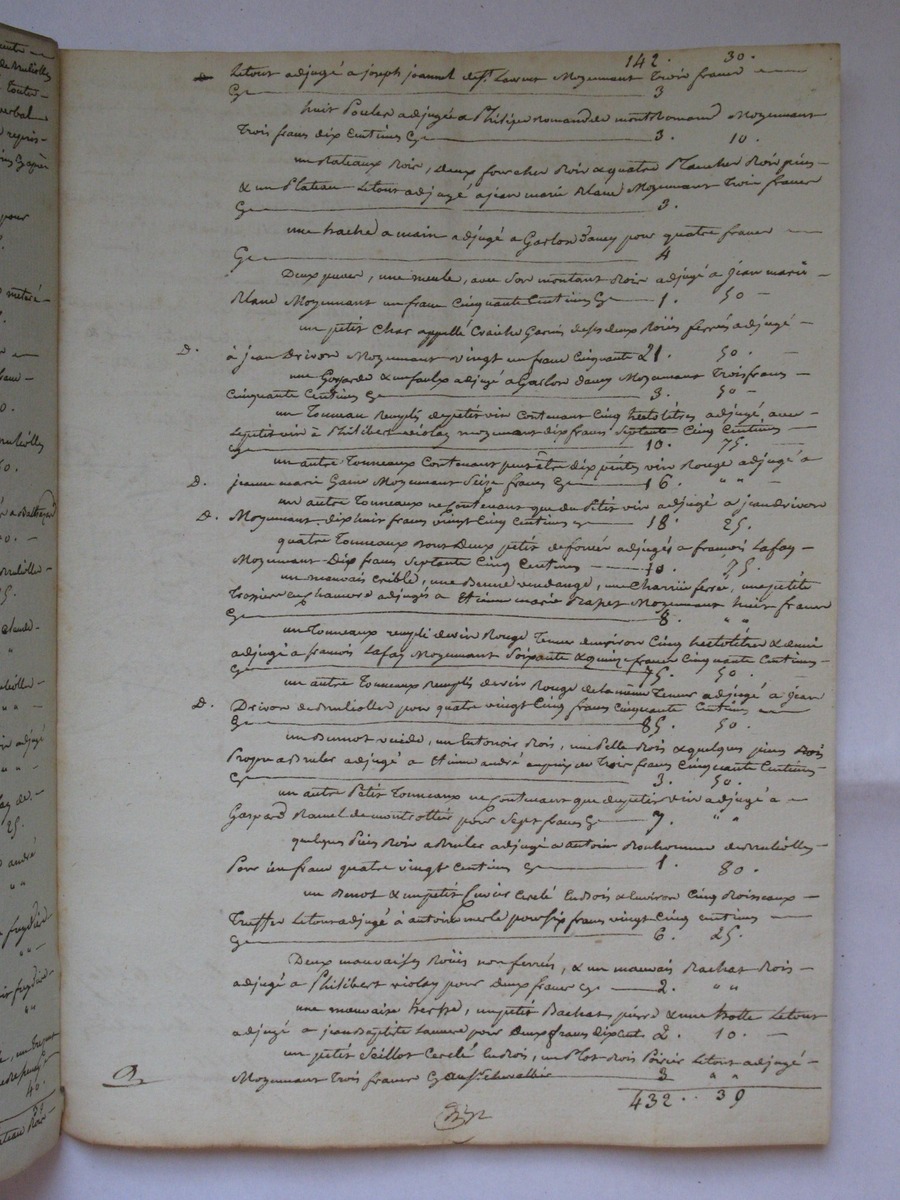 142. 30.
Letout adjugé a joseph joannel de St. Laurent Moyennant Trois francs
Cy 3
huit Poules adjugées a Philipe Romand de montRomand Moyennant
Trois francs dix Centimes Cy 3. 10.
un Rateaux Bois, Deux fourches Bois & quatre Planches Bois
& un Plateau Letout adjugé a jean marie Blanc Moyennant Trois francs
Cy 3.
une hache a main adjugé a Gaslon Dancy pour quatre francs
Cy 4
Deux, une meule, avec Son montant Bois adjugé a jean marie
Blanc Moyennant un franc Cinquante Centimes Cy 1. 50
un petit Char appellé Garnis de Ses deux Roües ferrés adjugé
D. à jean Drivon Moyennant vingt un franc Cinquante 21. 50.
une & un faulx adjugé a Gaslon Dancy Moyennant Trois francs
Cinquante Centimes Cy 3. 50
un Tonneau Remplis de petit vin Contenant Cinq hectolitres adjugé avec
Le petit vin à Philibert violay moyennant dix francs Septente Cinq Centimes
Cy 10. 75.
un autre Tonneaux Contenant peut être dix pintes vin Rouge adjugé a
D. jeanne marie Moyennant Seize francs Cy 16. " "
un autre Tonneaux ne Contenant que du Petit vin adjugé a jean drivon
D. Moyennant dix huit francs vingt Cinq Centimes Cy 18. 25.
quatre Tonneaux dont Deux petit defoncés adjugés a francois Lafay
Moyennant Dix francs Septante Cinq Centimes 10. 75.
un mauvais Crible, une Benne vendange, une Charrüe ferré, une petite
adjugés a Etienne marie Moyennant huit francs
Cy 8. " "
un Tonneaux rempli de vin Rouge Tenue denviron Cinq hectolitres & demi
adjugé a francois Lafay Moyennant Soixante & quinze francs Cinquante Centimes
Cy 75. 50.
un autre Tonneaux Remplis de vin Rouge de la même Tenue adjugé a jean
D. Drivon de Brulioles pour quatre vingt Cinq francs Cinquante Centimes
Cy 85. 50.
un Bennot, un Entonoir Bois, une Pelle Bois & quelques pieces Bois
Propre a Bruler adjugé a Etienne andré au prix de Trois francs Cinquante Centimes
Cy 3. 50.
un autre Petit Tonneaux ne Contenant que du petit vin adjugé a
Gaspard de montrottier pour Sept francs Cy 7. " "
quelques Bois a Bruler adjugé a antoine Bonhomme de Brulioles
Pour un franc quatre vingt Centimes Cy 1. 80.
un Benot & un petit Cuvier Cerclé en bois & Environ Cinq Boisseaux
Truffes Letout adjugé à antoine merle pour Six francs vingt Cinq Centimes
Cy 6. 25.
Deux mauvaises Roües non ferrées, & un mauvais Bachat Bois
adjugé a Philibert violay pour Deux francs Cy 2. " "
une mauvaise herse, un petit Bachat pierre & une hotte Letout
adjugé a jean Baptiste Pour Deux francs Dix Cent. 2. 10.
un petit Seillot Cerclé en bois, un Plot Bois Poirier Letout adjugé
Moyennant Trois francs Cy chevallier 3 " "
432. 39